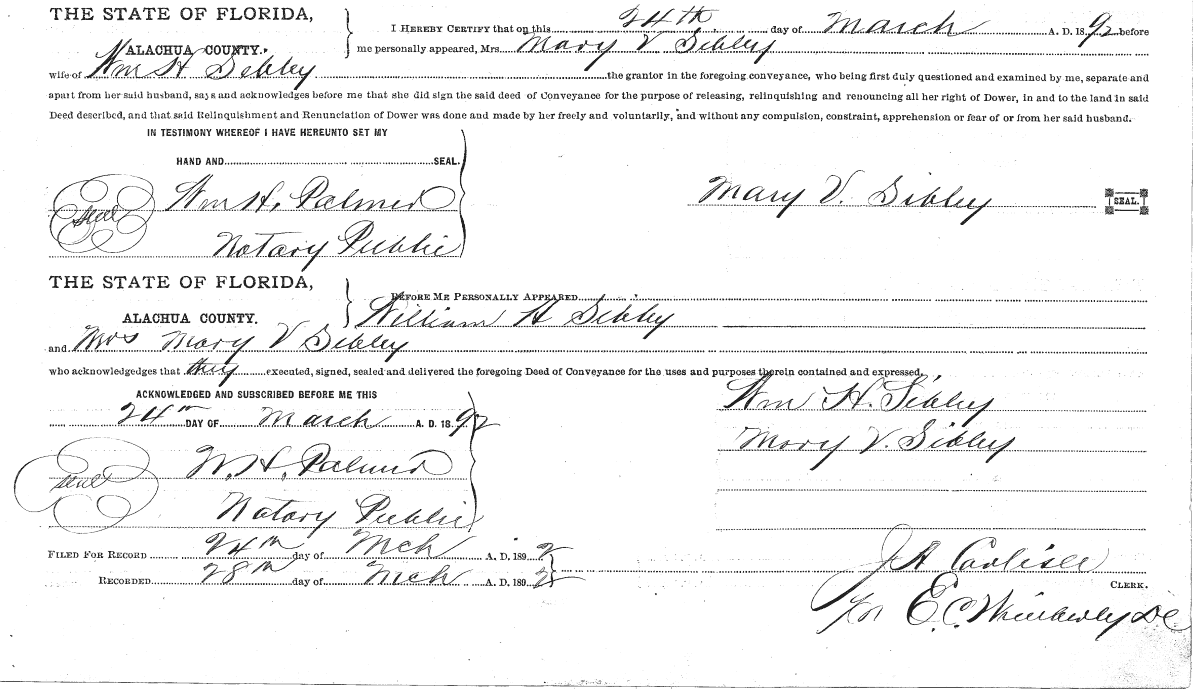 THE STATE OF FLORIDA,
ALACHUA COUNTY.
I HEREBY CERTIFY that on this 24th day of March A. D. 1892 before
me personally appeared, Mrs. Mary V Sibley
wife of Wm H Sibley the grantor in the foregoing conveyance, who being first duly questioned and examined by me, separate and
apart from her said husband, says and acknowledges before me that she did sign the said deed of Conveyance for the purpose of releasing, relinquishing and renouncing all her right of Dower, in and to the land in said
Deed described, and that said Relinquishment and Renunciation of Dower was done and made by her freely and voluntarily, and without any compulsion, constraint, apprehension or fear of or from her said husband.
IN TESTIMONY WHEREOF I HAVE HEREUNTO SET MY
HAND AND SEAL.
seal Wm H. Palmer
Mary V. Sibley SEAL.
Notary Public
THE STATE OF FLORIDA,
ALACHUA COUNTY.
BEFORE ME PERSONALLY APPEARED
William H Sibley
and Mrs Mary V Sibley
who acknowledgedges that they executed, signed, sealed and delivered the foregoing Deed of Conveyance for the uses and purposes therein contained and expressed.
ACKNOWLEDGED AND SUBSCRIBED BEFORE ME THIS
Wm H. Sibley
24th DAY OF March A. D. 1892
Mary V. Sibley
seal W. H. Palmer
Notary Public
FILED FOR RECORD 24th day of Mch A. D. 1892
RECORDED 28th day of Mch A. D. 1892
J A Carlisle
CLERK.
per E. C. Wimberly DC